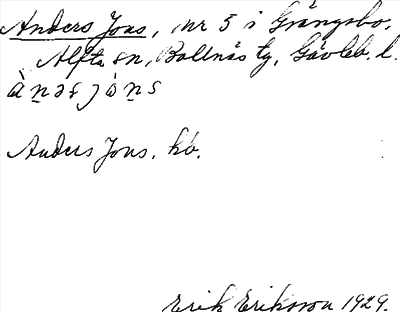 Anders Jons, nr 5 i Grängsbo,
Alfta sn, Bollnäs tg, Gävleb. l.
ànəsjòns
Anders Jons. hb.
Erik Eriksson 1929.